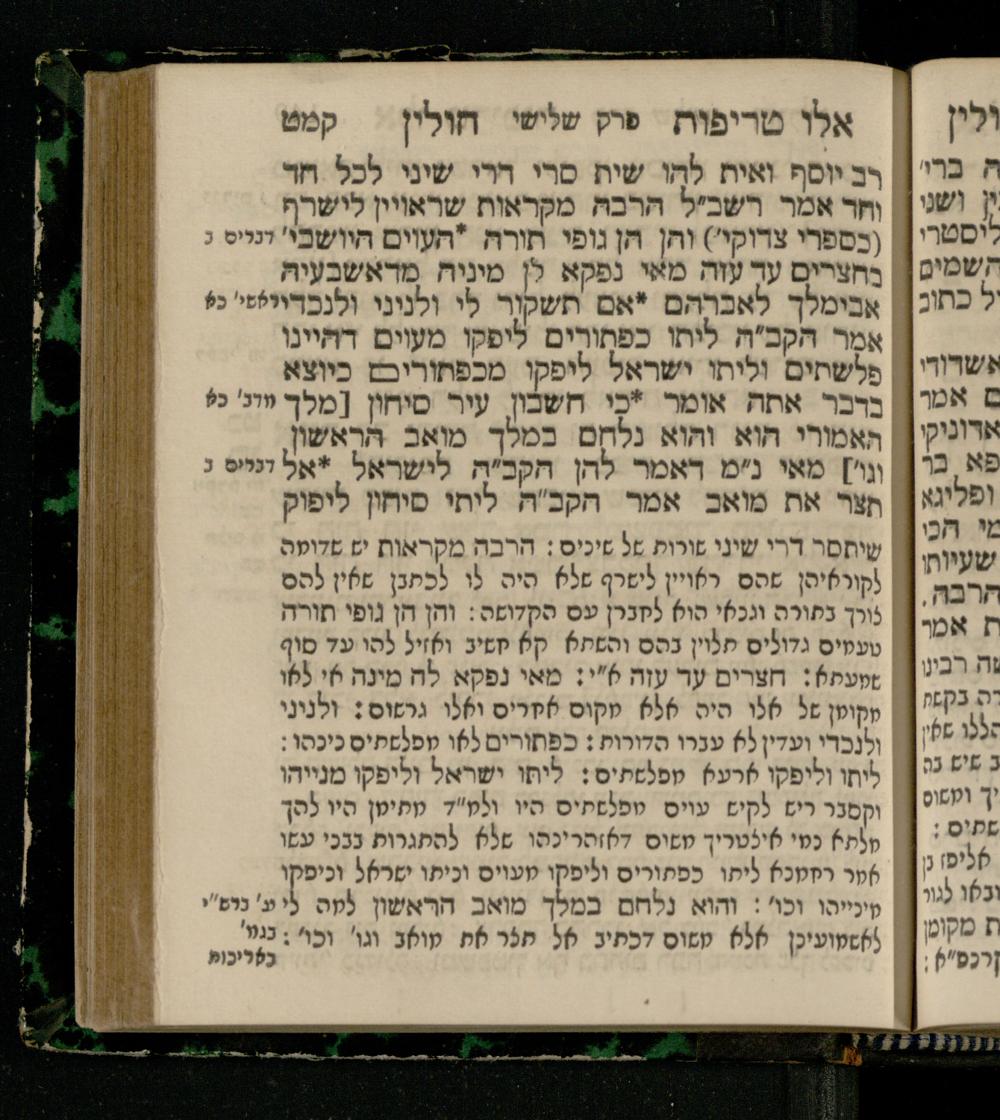 אלו טריפות פרק שלישי חולין קמט
רב יוסף ואית להו שית סרי דרי שיני לכל חד
וחד אמר רשב״ל הרבה מקראות שראויין לישרף
(כספרי צדוקי׳) והן הן גופי תורה *העוים היושבי׳ דברים ב
בחצרים עד עזה מאי נפקא לן מיניה מדאשבעיה
אבימלך לאברהם *אם תשקור לי ולניני ולנכדי ראשי׳ כא
אמר הקב״ה ליתו כפתורים ליפקו מעוים דהיינו
פלשתים וליתו ישראל ליפקו מכפתורים כיוצא
בדבר אתה אומר *כי חשבון עיר סיחון [מלך מדב׳ כא
האמורי הוא והוא נלחם במלך מואב הראשון
וגו׳] מאי נ״מ דאמר להן הקב״ה לישראל *אל דברים ב
תצר את מואב אמר הקב״ה ליתי סיחון ליפוק
שיתסר דרי שיני שורות של שיכים: הרבה מקראות יש שדומה
לקוראיהן שהם ראויין לישרף שלא היה לו לכתבן שאין להם
צורך בתורה וגנאי הוא לחברן עם הקדושה: והן הן גופי תורה
טעמים גדולים תלוין בהם והשתא קא חשיב ואזיל להו עד סוף
שמעתא: חצרים עד עזה א״י: מאי נפקא לה מינה אי לאו
מקומן של אלו היה אלא מקום אחרים ואלו גרשום: ולניני
ולנכדי ועדין לא עברו הדורות: כפתורים לאו מפלשתים נינהו:
ליתו וליפקו ארעא מפלשתים: ליתו ישראל וליפקו מנייהו
וקסבר ריש לקיש עוים מפלשתים היו ולמ״ד מתימן היו להך
מלתא נמי איצטריך משום דאזהרינהו שלא להתגרות בבני עשו
אמר רחמנא ליתו כפתורים וליפקו מעוים וניתו ישראל וניפקו
מינייהו וכו׳: והוא נלחם במלך מואב הראשון למה לי עי׳ ברש״י
לאשמועינן אלא משום דכתיב אל תצר את מואב וגו׳ וכו׳: בגמ׳
באריכות
ולין
ה ברי׳
ין ושני
ליסטרי
השמים
ל כתוב
אשדודי
ם אמר
אדוניקי
פא בר
ופליגא
מי הכי
שעיותו
הרבה.
ת אמר
שה רבינו
רה בקשת
הללו שאין
ב שיש בה
יך ומשום
שתים:
אליפז בן
ובאו לגור
ת מקומן